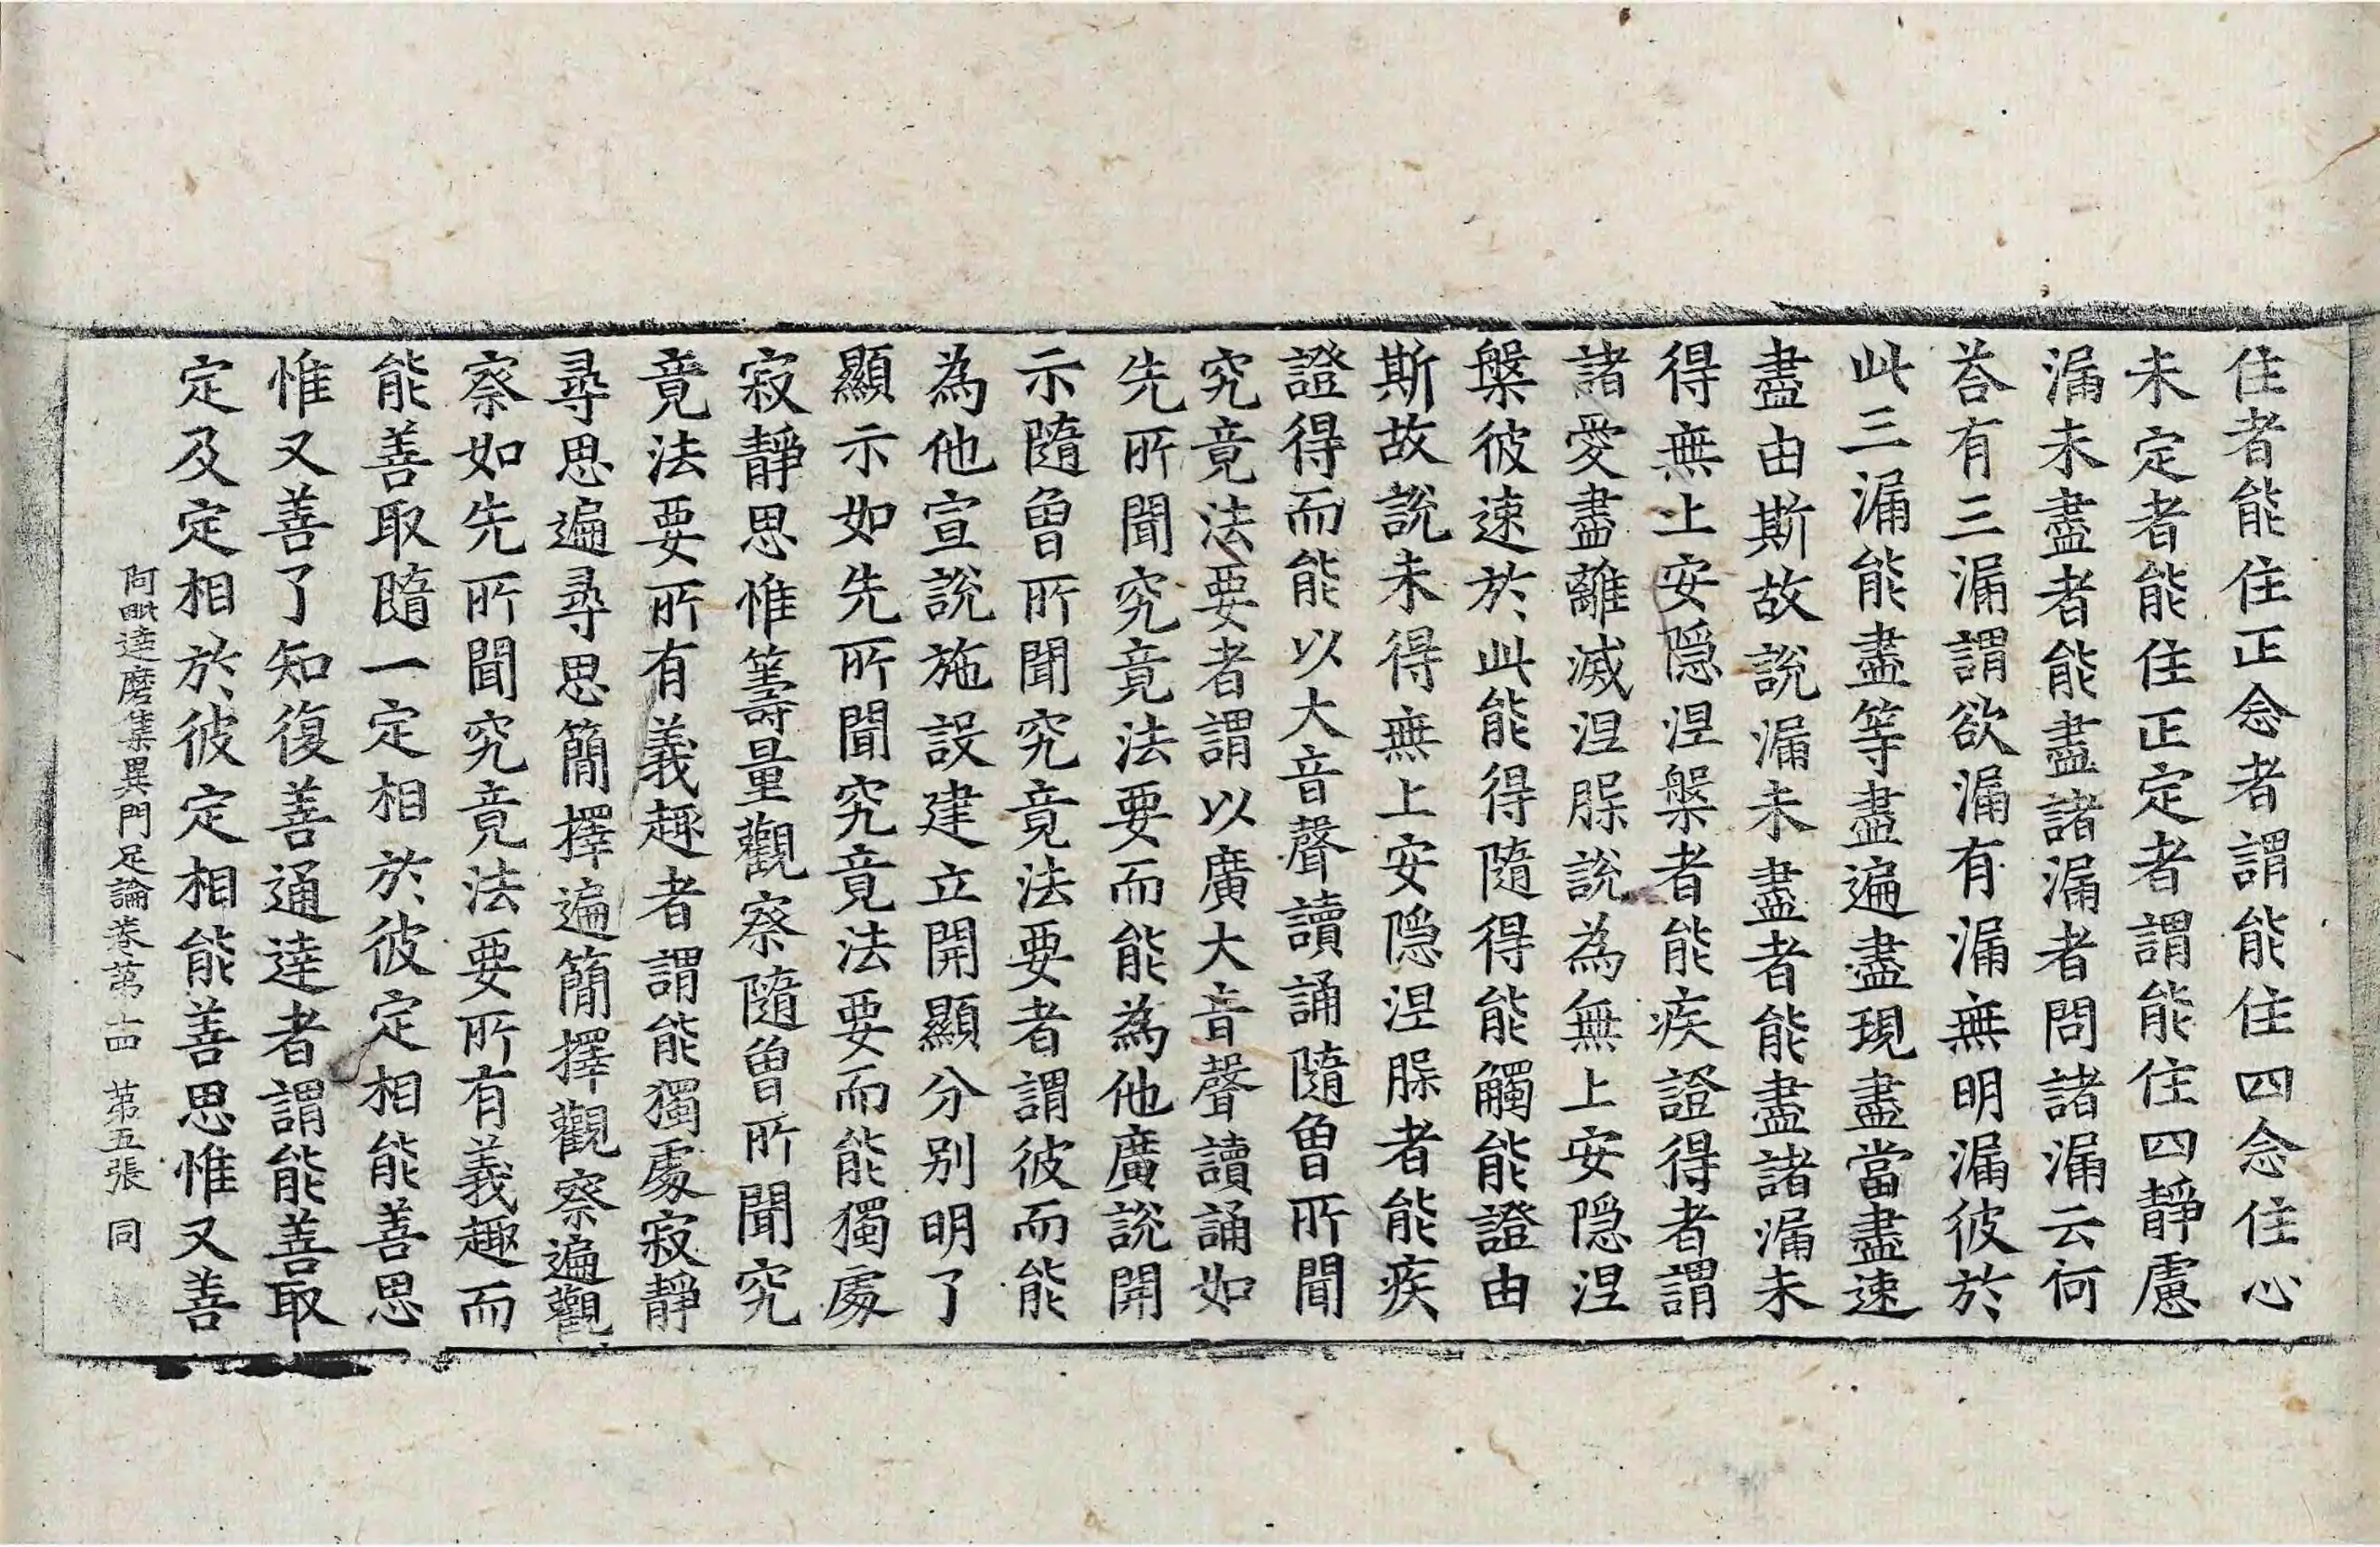 住者能住正念者謂能住四念住心
未定者能住正定者謂能住四靜慮
漏未盡者能盡諸漏者問諸漏云何
荅有三漏謂欲漏有漏無明漏彼於
此三漏能盡等盡遍盡現盡當盡速
盡由斯故說漏未盡者能盡諸漏未
得無上安隱涅槃者能疾證得者謂
諸愛盡離滅涅槃說為無上安隱涅
槃彼速於此能得隨得能觸能證由
斯故說未得無上安隱涅槃者能疾
證得而能以大音聲讀誦隨曾所聞
究竟法要者謂以廣大音聲讀誦如
先所聞究竟法要而能為他廣說開
示隨曾所聞究竟法要者謂彼而能
為他宣說施設建立開顯分別明了
顯示如先所聞究竟法要而能獨處
寂靜思惟籌量觀察隨曾所聞究
竟法要所有義趣者謂能獨處寂靜
尋思遍尋思簡擇遍簡擇觀察遍觀
察如先所聞究竟法要所有義趣而
能善取隨一定相於彼定相能善思
惟又善了知復善通達者謂能善取
定及定相於彼定相能善思惟又善
阿毗達磨集異門足論卷第十四 第五張 同